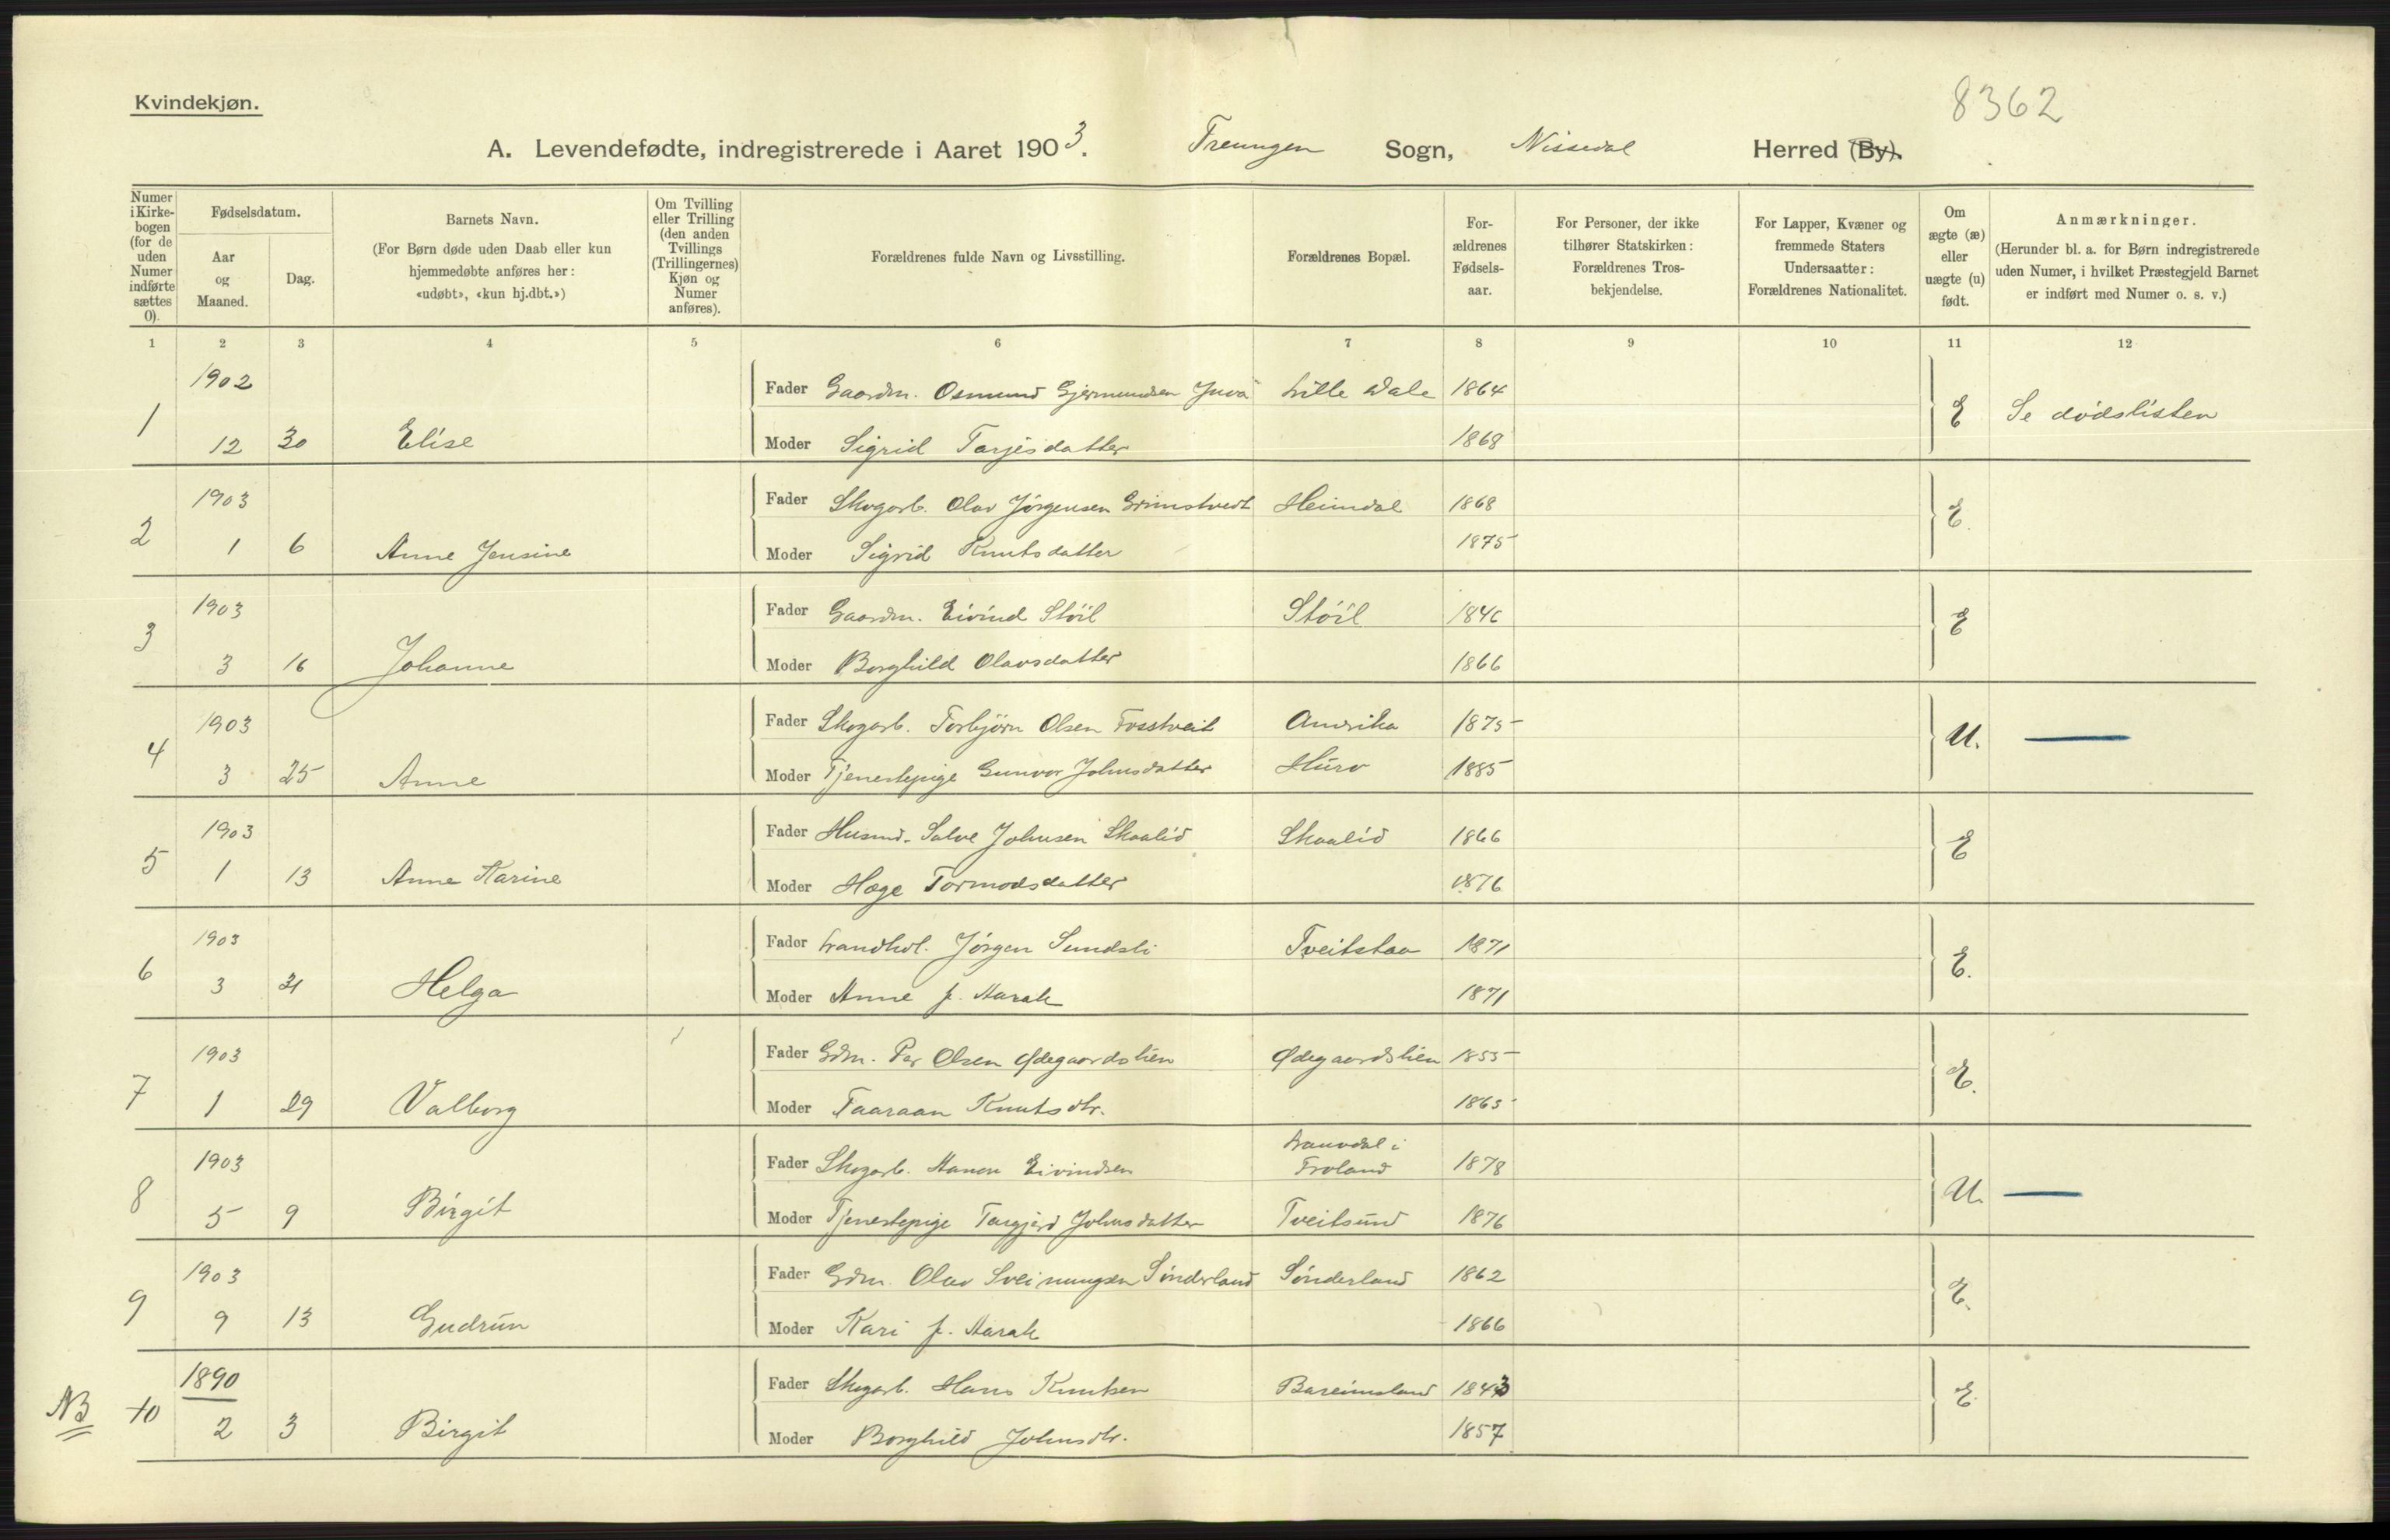 Kvindekjøn.
8362
A. Levendefødte, indregistrerede i Aaret 1903. Treungen Sogn, Nissedal Herred (By).
Numer i Kirke-bogen (for de uden Numer indførte sættes 0).
Fødselsdatum.
Aar og Maaned.
Dag.
Barnets Navn.
(For Børn døde uden Daab eller kun hjemmedøbte anføres her: «udøbt», «kun hj.dbt.»)
Om Tvilling eller Trilling (den anden Tvillings (Trillingernes) Kjøn og Numer anføres).
Forældrenes fulde Navn og Livsstilling.
Forældrenes Bopæl.
For-ældrenes Fødsels-aar.
For Personer, der ikke tilhører Statskirken: Forældrenes Tros-bekjendelse.
For Lapper, Kvæner og fremmede Staters Undersaatter: Forældrenes Nationalitet.
Om ægte (æ) eller uægte (u) født.
Anmærkninger.
(Herunder bl. a. for Børn indregistrerede uden Numer, i hvilket Præstegjeld Barnet er indført med Numer o. s. v.)
1 2 3 4 5 6 7 8 9 10 11 12
1902 Fader Gaardm. Osmund Gjermundsen Juva Lille Dale 1864
1 12 30 Elise Moder Sigrid Tarjesdatter 1868 E Se dødslisten
1903 Fader Skogarb. Olav Jørgensen Grimstvedt Heimdal 1868
2 1 6 Anne Jensine Moder Sigrid Knutsdatter 1875 E.
1903 Fader Gaardm. Eivind Støil Støil 1846
3 3 16 Johanne Moder Borghild Olavsdatter 1866 E
1903 Fader Skogarb. Torbjørn Olsen Fosstveit Amerika 1875
4 3 25 Anne Moder Tjenestepige Gunvor Johnsdatter 1885 U.
1903 Fader Husmd. Salve Johnsen Skaalid Skaalid 1866
5 1 13 Anne Karine Moder Hæge Tormodsdatter 1876 E
1903 Fader Landhdl. Jørgen Sundsli Tveitstaa 1871
6 3 Helga Moder Anne f. Harak 1871 E.
1903 Fader Gdm. Per Olsen Ødegaardslien Ødegaardslien 1855
7 1 29 Valborg Moder Taaraan Knutsdtr. 1865 E.
1903 Fader Skogarb. Eivindsen i Froland 1878
8 5 9 Birgit Moder Tjenestepige Targjærd Johnsdatter Tveitsund 1876 U.
1903 Fader Gdm. Olav Sveinungsen Sønderland Sønderland 1862
9 9 13 Gudrun Moder Kari f. Harak 1866 E.
1890 Fader Skogarb. Hans Knutsen Bareinsland 1843
NB 10 2 3 Birgit Moder Borghild Johnsdtr. 1857 E.